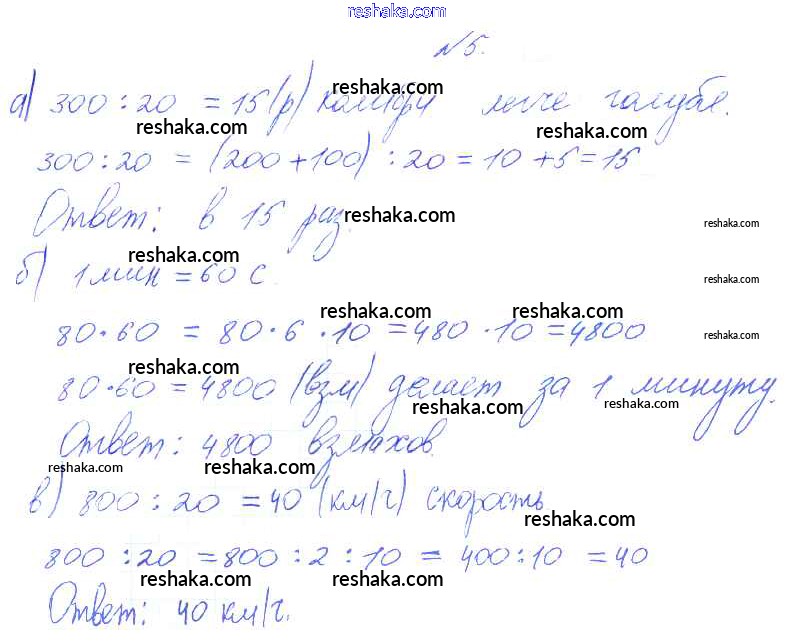 reshaka.com
№5.
а) 300 : 20 = 15 (р) колибри легче голубя.
reshaka.com
reshaka.com reshaka.com
300 : 20 = (200 + 100) : 20 = 10 + 5 = 15
Ответ: в 15 раз.
reshaka.com reshaka.com
reshaka.com
б) 1 мин = 60 с.
reshaka.com
reshaka.com reshaka.com
80 · 60 = 80 · 6 · 10 = 480 · 10 = 4800
reshaka.com
reshaka.com
80 · 60 = 4800 (взм) делает за 1 минуту.
reshaka.com reshaka.com
Ответ: 4800 взмахов.
reshaka.com reshaka.com
в) 800 : 20 = 40 (км/ч) скорость
reshaka.com
800 : 20 = 800 : 2 : 10 = 400 : 10 = 40
reshaka.com reshaka.com
Ответ: 40 км/ч.